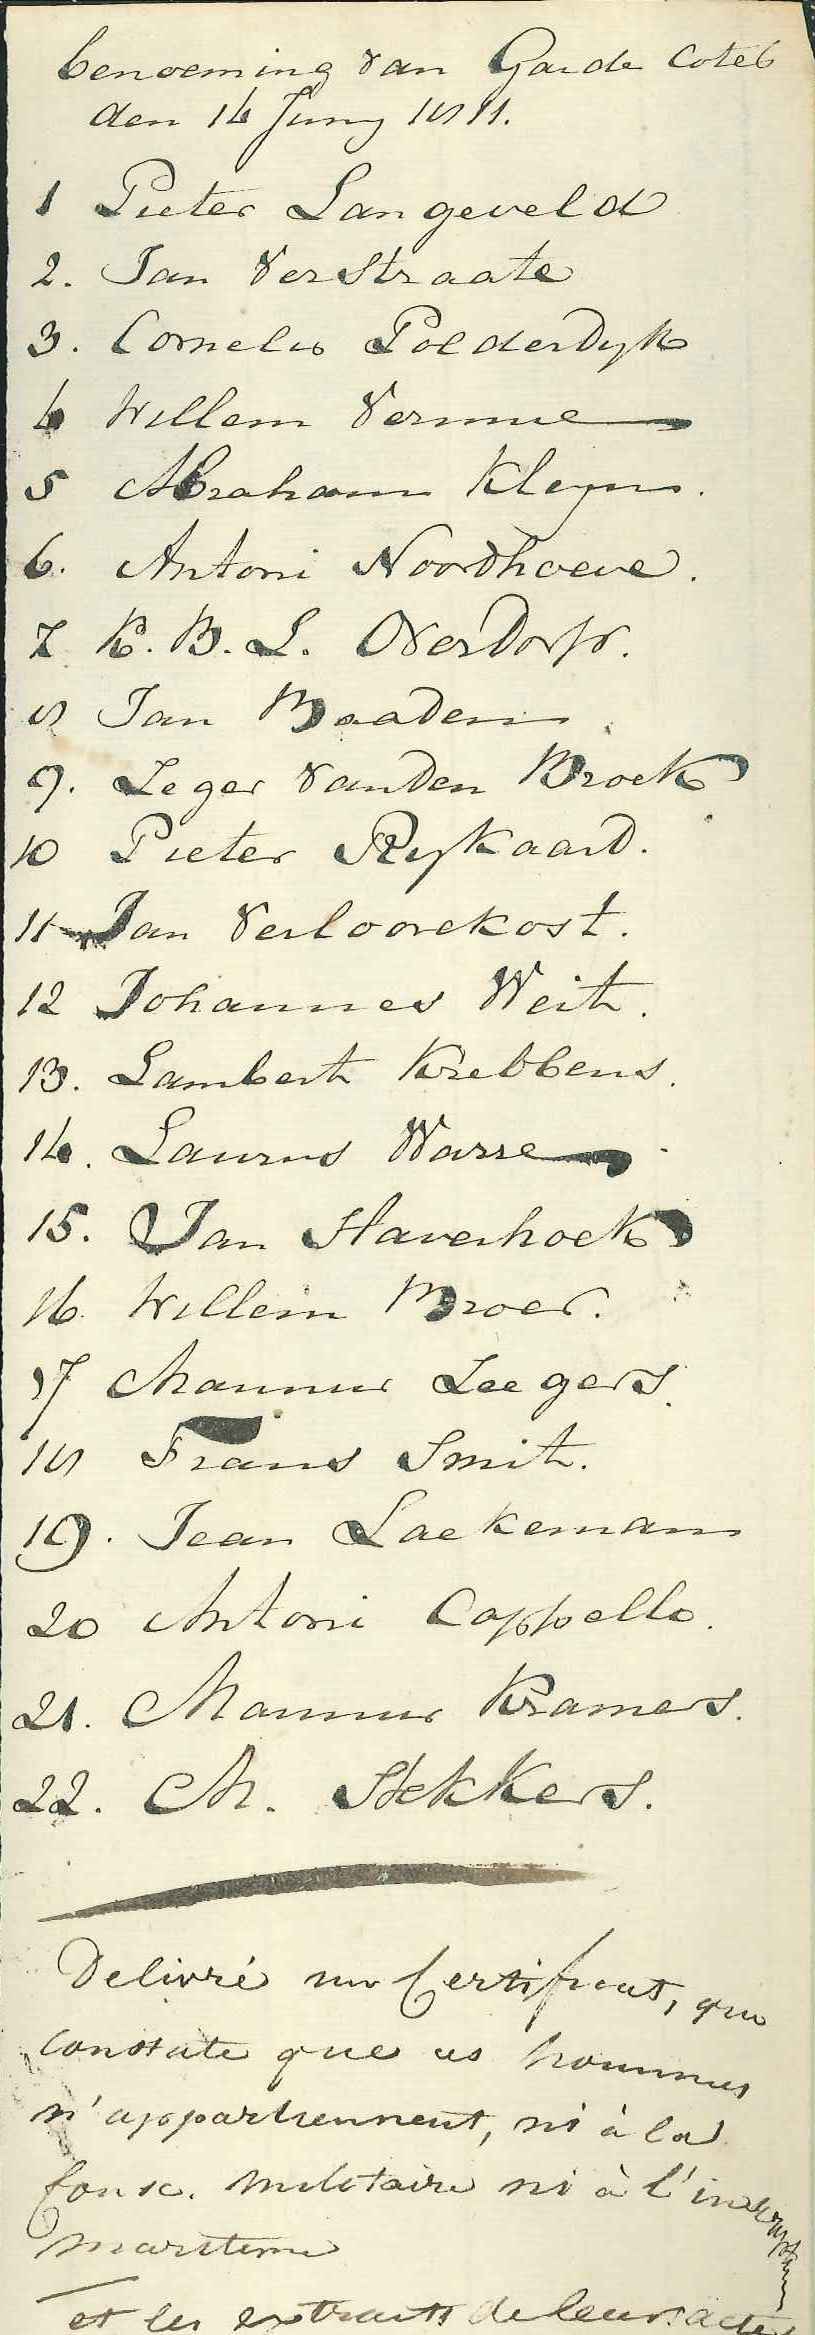 benoeming van Garde Coteb
den 14 Juny 1811.
1 Pieter Langeveld
2. Jan Verstraate
3. Cornelis PolderDyk
4 Willem Vermue
5 Abraham Kleyn.
6. Antoni Noordhoeve.
7 K. B. L. OverDorp.
8 Jan BaaDen
9. Leger VanDen Broek
10 Pieter Rykaard.
11 Jan Verloorekost.
12 Johannes Weit.
13. Lambert Krebbens.
14. Laurus Warre
15. Jan Haverhoek
16 Willem Broer.
17 Marinus Leegers.
18 Frans Smit.
19. Jean Laekeman
20 Antoni Cappello.
21. Marinus Kramers.
22. M. Stekkers.
Delivré un Certificat, qui
constate que ces hommes
n'appartiennent, ni à la
Consc. militaire ni à l'inscription
maritime
et les extraits de leurs actes